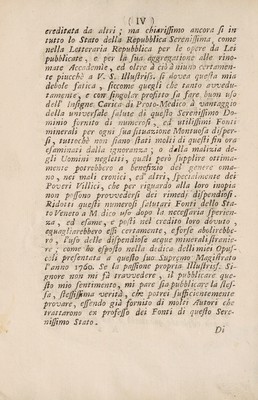 ( IV )
ereditata da altri ; ma chiarissimo ancora si in
tutto lo Stato della Repubblica Serenissima, come
nella Letteraria Repubblica per le opere da Lei
pubblicate, e per la sua aggregazione alle rino-
mate Accademie, ed oltre a ciò a niuno certamen-
te piucchè a V. S. Illustriss. si dovea questa mia
debole fatica, siccome quegli che tanto avvedu-
tamente, e con singolar profitto sa fare buon uso
dell' Insigne Carica di Proto-Medico a vantaggio
della universale salute di questo Serenissimo Do-
minio fornito di numerosi, ed utilissimi Fonti
minerali per ogni sua situazione Montuosa disper-
si, tuttochè non siano stati molti di questi fin ora
esaminati dalla ignoranza, o dalla malizia de-
gli Uomini neglesti, quali però supplire ottima-
mente potrebbero a benefizio del genere uma-
no, nei mali cronici, ed altri, specialmente dei
Poveri Villici, che per riguardo alla loro inopia
non possono provvedersi dei rimedj dispendiosi.
Ridotti questi numerosi salutari Fonti dello Sta-
to Veneto a Medico uso dopo la necessaria sperien-
za, ed esame, e posti nel credito loro dovuto,
eguaglierebbero essi certamente, e forse abolirebbe-
ro, l'uso delle dispendiose acque minerali stranie-
re, come ho esposto nella dedica delli miei Opus-
coli presentata a questo suo Supremo Magistrato
l'anno 1760. Se la passione propria Illustriss. Si-
gnore non mi fà travvedere, il pubblicare que-
sto mio sentimento, mi pare sia pubblicare la stes-
sa, stessissima verità, che potrei sufficientemente
provare, essendo già fornito di molti Autori che
trattarono ex professo dei Fonti di questo Sere-
nissimo Stato.
Di